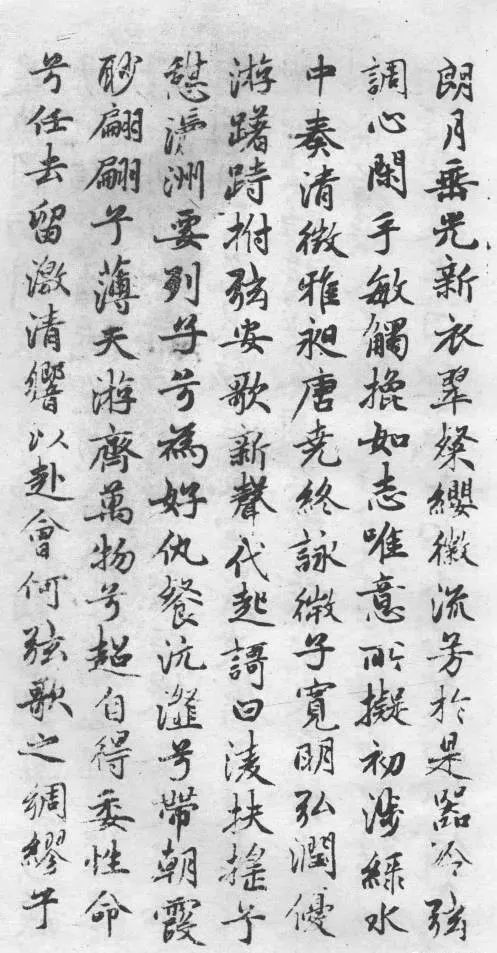 朗月垂光新衣翠粲纓徽流芳於是器冷弦
調心閑手敏觸如志唯意所擬初涉綠水
中奏清徵雅昶唐堯終詠微子寬明弘潤優
游躇跱拊弦安歌新聲代起謌曰淩扶搖兮
憩瀛洲要列子兮為好仇餐沆瀣兮帶朝霞
眇翩翩兮薄天游齊萬物兮超自得委性命
兮任去留激清響以赴會何弦歌之綢繆于